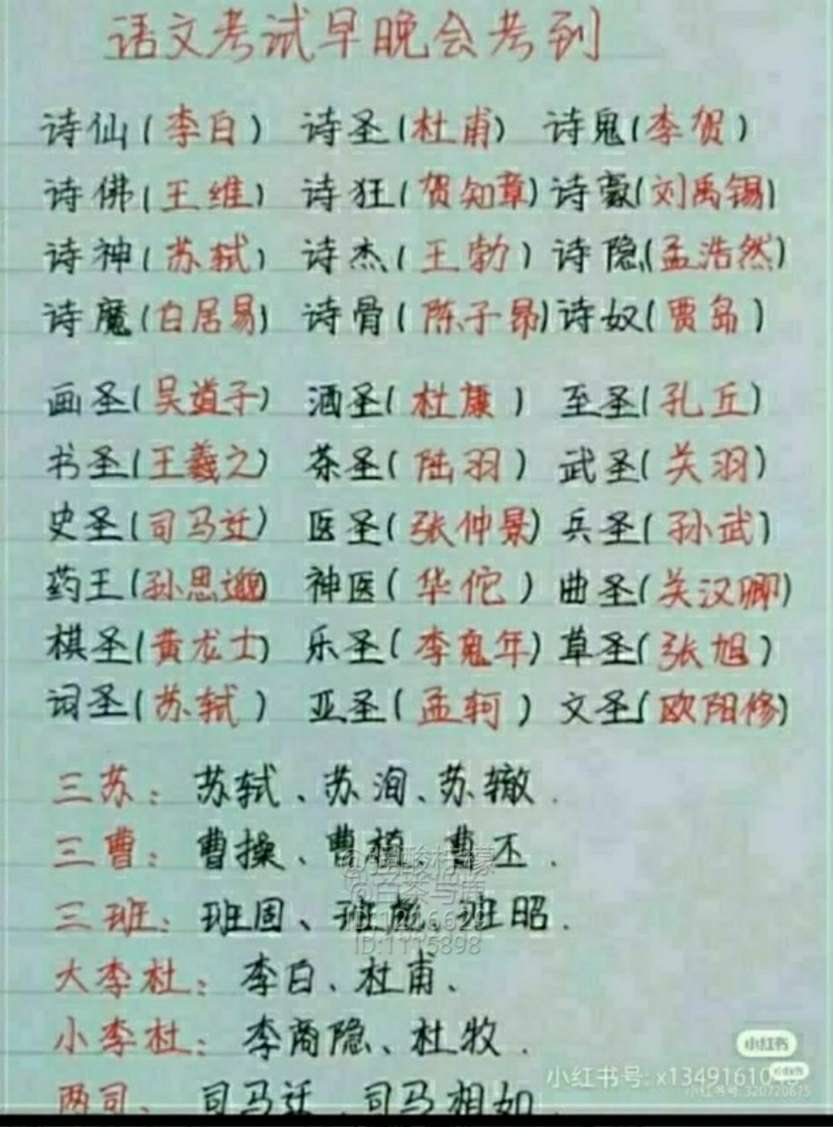 语文考试早晚会考到
诗仙(李白) 诗圣(杜甫) 诗鬼(李贺)
诗佛(王维) 诗狂(贺知章) 诗豪(刘禹锡)
诗神(苏轼) 诗杰(王勃) 诗隐(孟浩然)
诗魔(白居易) 诗骨(陈子昂) 诗奴(贾岛)
画圣(吴道子) 酒圣(杜康) 至圣(孔丘)
书圣(王羲之) 茶圣(陆羽) 武圣(关羽)
史圣(司马迁) 医圣(张仲景) 兵圣(孙武)
药王(孙思邈) 神医(华佗) 曲圣(关汉卿)
棋圣(黄龙士) 乐圣(李龟年) 草圣(张旭)
词圣(苏轼) 亚圣(孟轲) 文圣(欧阳修)
三苏：苏轼、苏洵、苏辙.
三曹：曹操、曹植、曹丕.
三班：班固、班彪、班昭.
ID:1115898
大李杜：李白、杜甫、
小李杜：李商隐、杜牧.
小红书
小红书号: x1349161
小红书号:320720875
两司：司马迁、司马相如.